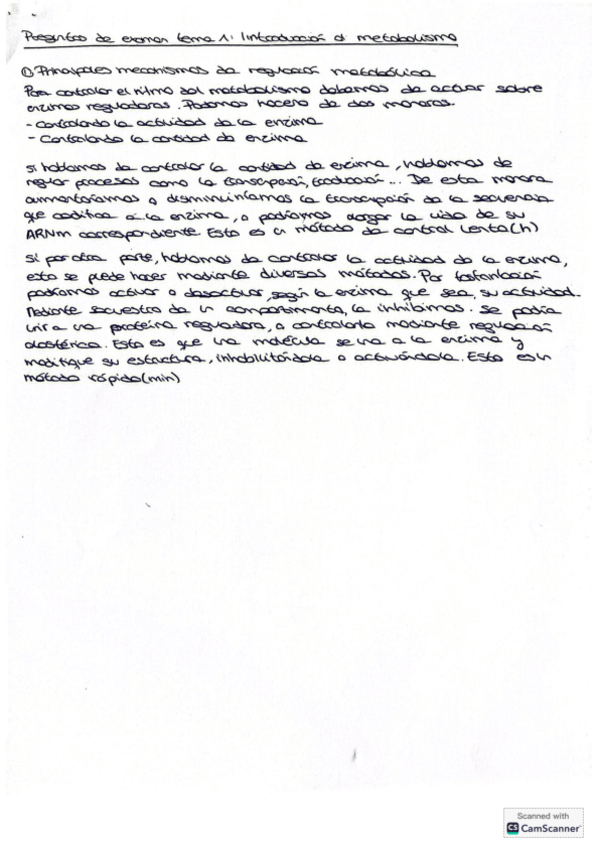 Preguntas de examen tema 1: Introducción al metabolismo
① Principales mecanismos de regulación metabólica
Para controlar el ritmo del metabolismo debemos de actuar sobre
enzimas reguladoras. Podemos hacerlo de dos maneras.
- Controlando la actividad de la enzima
- Controlando la cantidad de enzima
Si hablamos de controlar la cantidad de enzima, hablamos de
regular procesos como la transcripción, traducción... De esta manera
aumentaríamos o disminuiríamos la transcripción de la secuencia
que codifica a la enzima, o podríamos alargar la vida de su
ARNm correspondiente. Esto es un método de control lento (h)
Si por otra parte, hablamos de controlar la actividad de la enzima,
esto se puede hacer mediante diversos métodos. Por fosforilación
podríamos activar o desactivar, según la enzima que sea, su actividad.
Mediante secuestro de un compartimento, la inhibimos. Se podría
unir a una proteína reguladora, o controlarla mediante regulación
alostérica. Esta es que una molécula se una a la enzima y
modifique su estructura, inhabilitándola o activándola. Esto es un
método rápido (min)
Scanned with
CS CamScanner